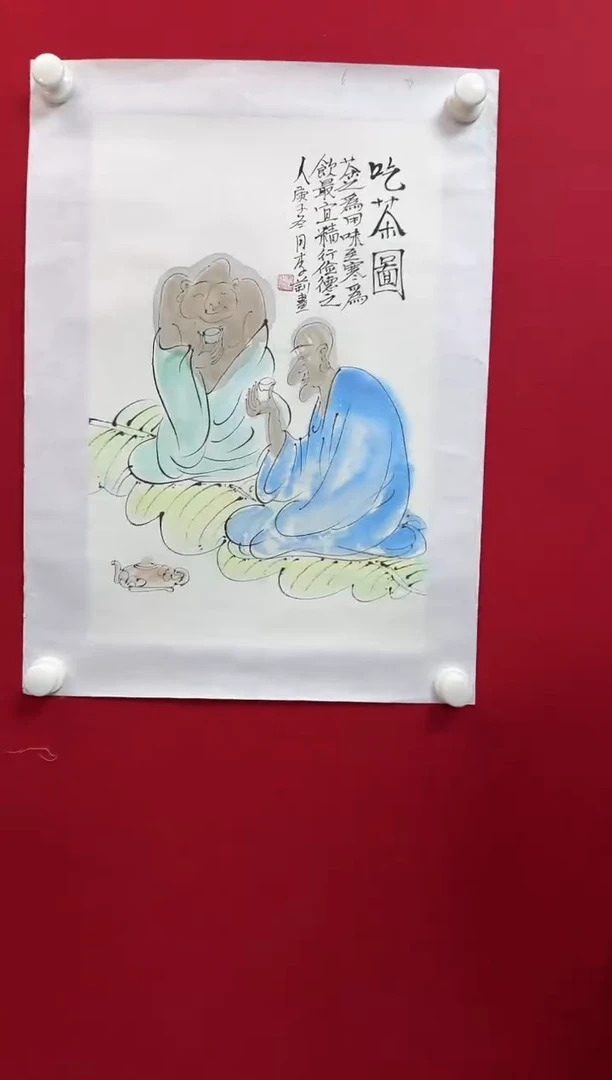 吃茶圖
茶之為用味至寒為
飲最宜精行儉德之
人庚子冬月李
畫